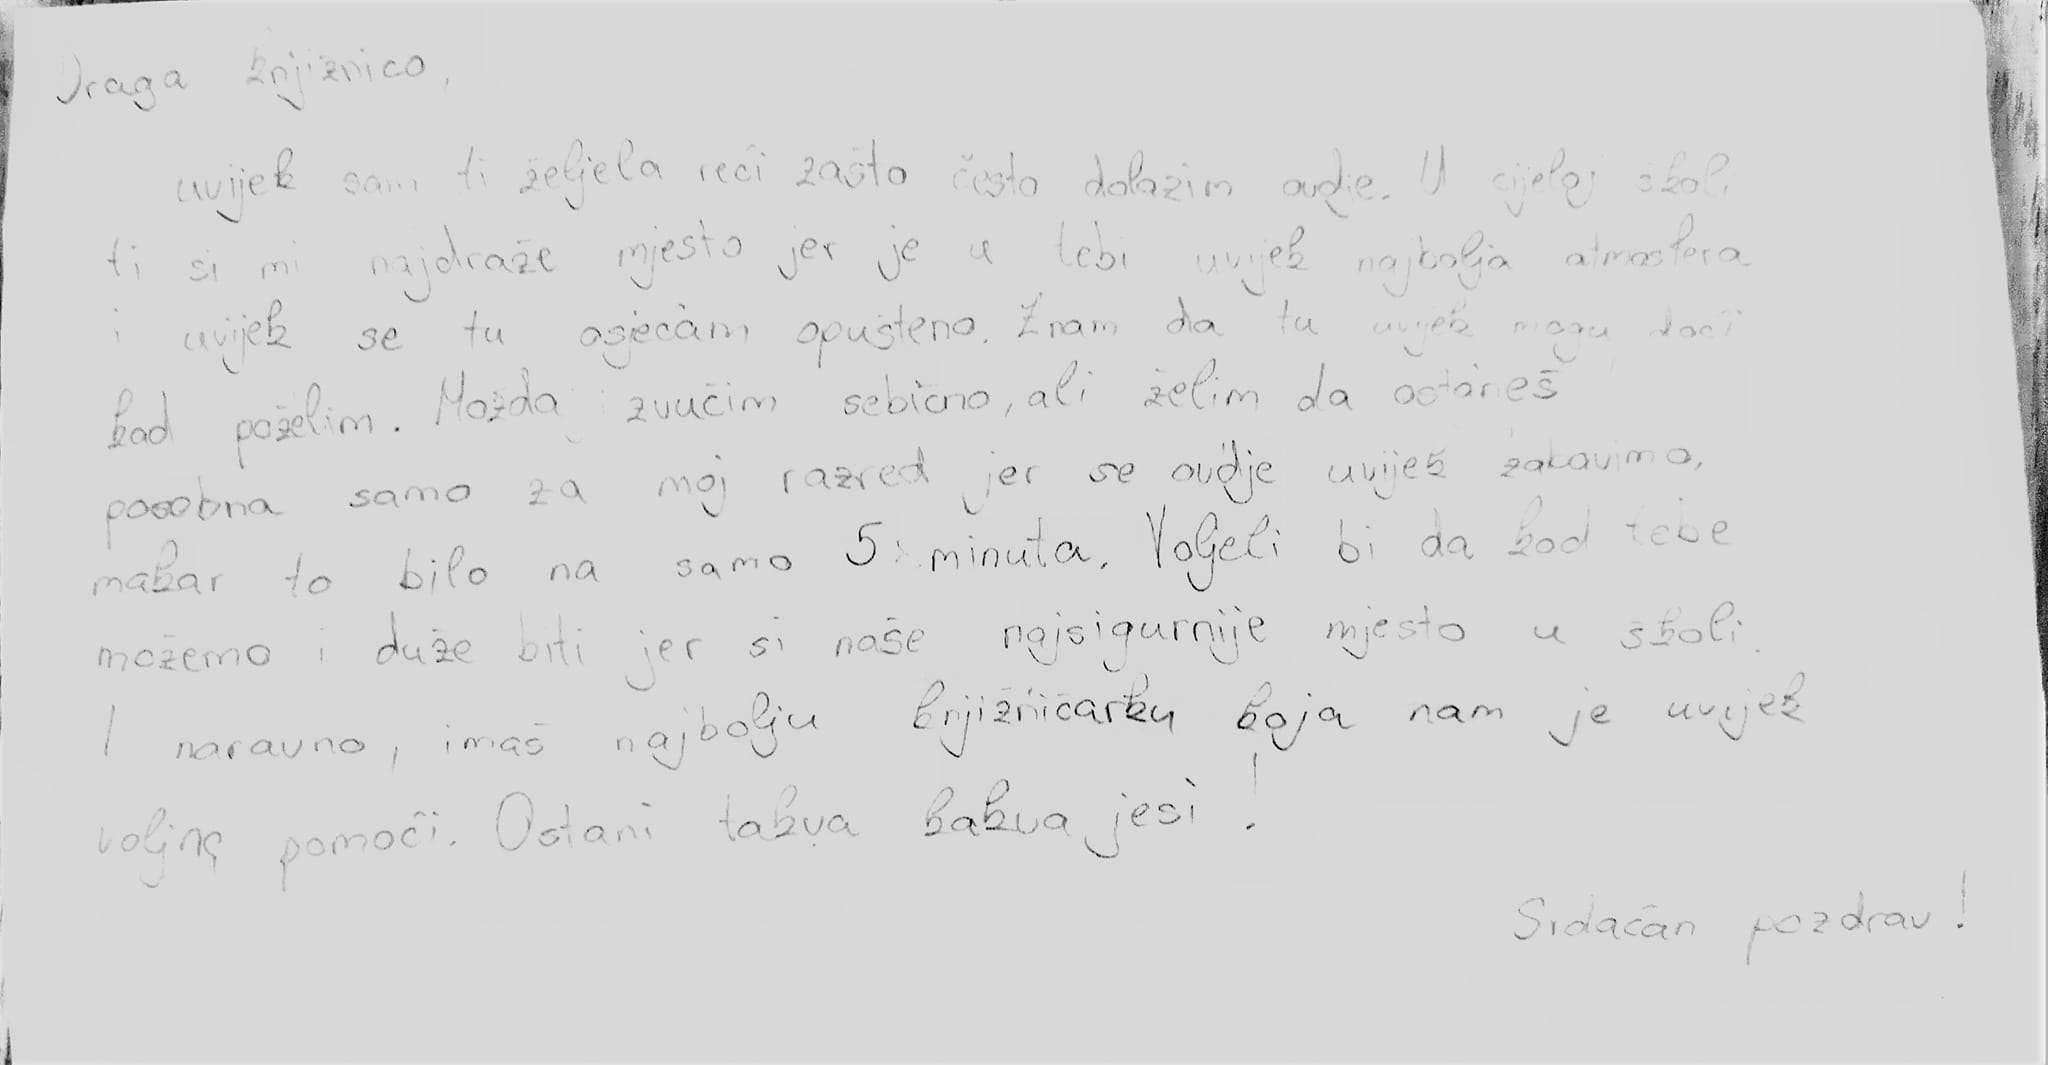 Draga knjižnico,
uvijek sam ti željela reći zašto često dolazim ovdje. U cijeloj školi
ti si mi najdraže mjesto jer je u tebi uvijek najbolja atmosfera
i uvijek se tu osjećam opušteno. Znam da tu uvijek mogu doći
kad poželim. Možda zvučim sebično, ali želim da ostaneš
posebna samo za moj razred jer se ovdje uvijek zabavimo,
makar to bilo na samo 5 minuta. Voljeli bi da kod tebe
možemo i duže biti jer si naše najsigurnije mjesto u školi.
I naravno, imaš najbolju knjižničarku koja nam je uvijek
voljna pomoći. Ostani takva kakva jesi!
Srdačan pozdrav!